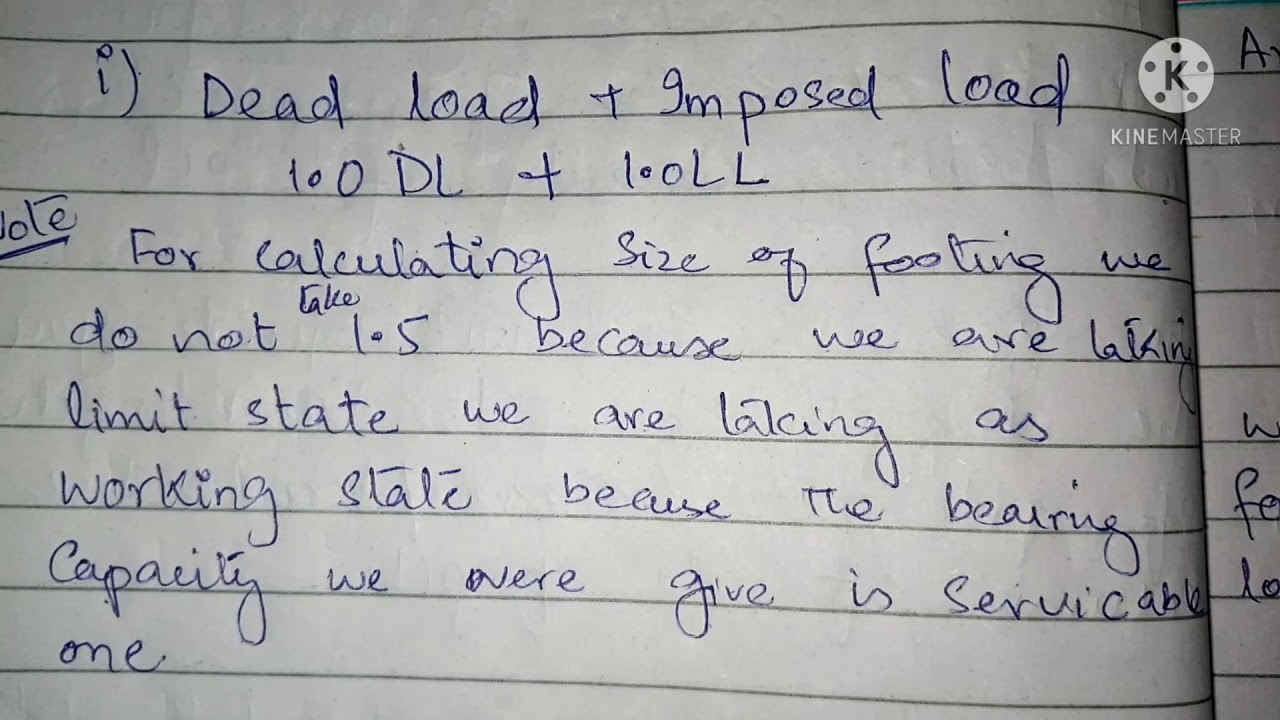 i) Dead load + Imposed load
1.0 DL + 1.0 LL
Note For calculating size of footing we
do not take 1.5 because we are taking
limit state we are taking as
working state becuse the bearing
Capacity we were give is Servicable
one
K
KINEMASTER